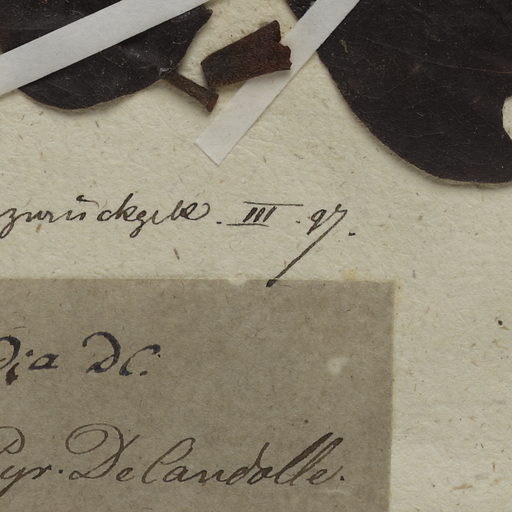 zurückgek. III. 97.
dia DC.
Pyr. DeCandolle.